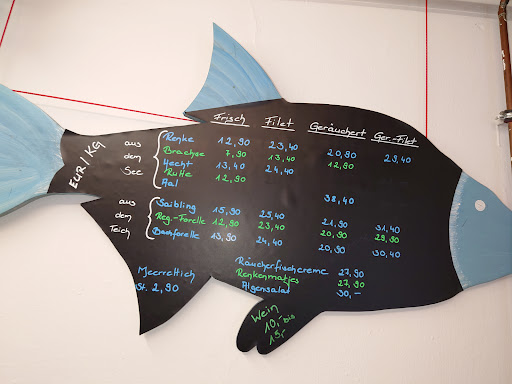 Frisch Filet Geräuchert Ger.-Filet
EUR/KG
aus dem See
Renke 12,90 23,40 20,90 29,40
Brachse 7,90 13,40 12,90
Hecht 13,40 24,40
Rutte 12,90
Aal 38,40
aus den Teich
Saibling 15,90 25,40 21,90 31,40
Reg.-Forelle 12,90 23,40 20,90 29,90
Bachforelle 13,90 24,40 20,90 30,40
Räucherfischcreme 27,90
Meerrettich Renkenmatjes 27,90
St. 2,90 Algensalat 30,-
Wein
10,- bis
15,-